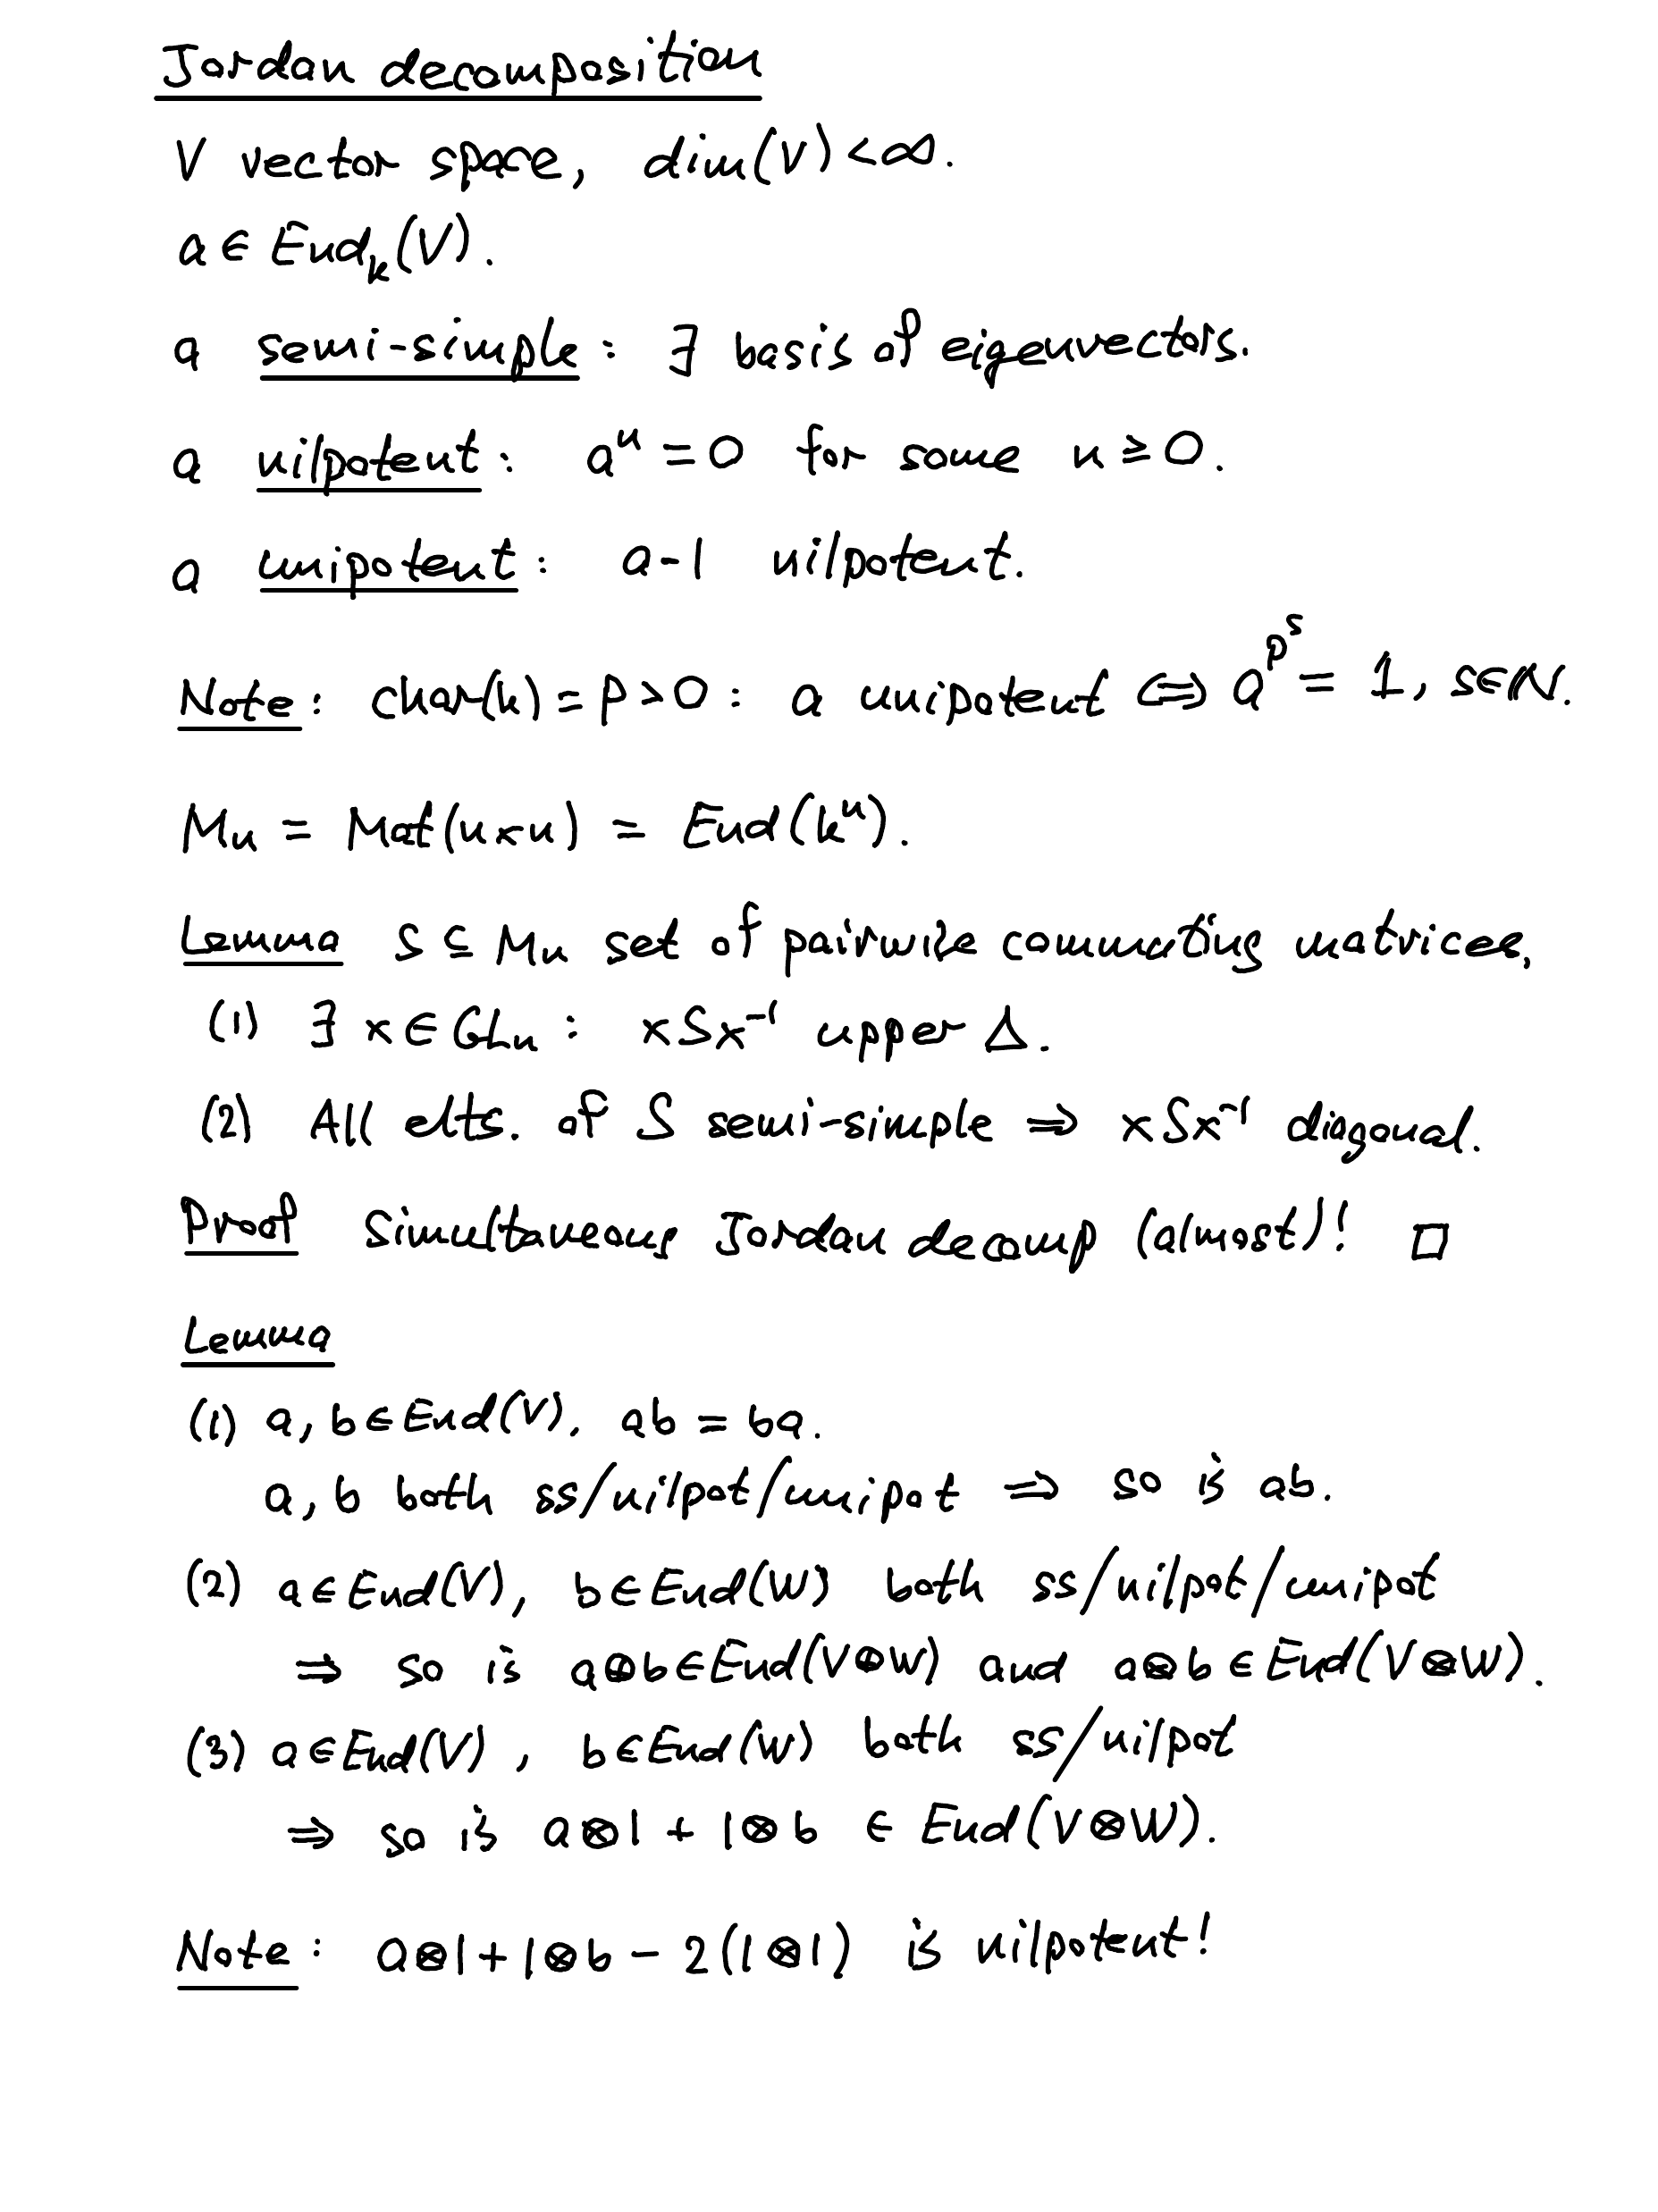 Jordan decomposition
V vector space, dim(V) < ∞.
a ∈ End_k(V).
a semi-simple: ∃ basis of eigenvectors.
a nilpotent: a^n = 0 for some n ≥ 0.
a unipotent: a-1 nilpotent.
Note: char(k) = p > 0: a unipotent ⇔ a^{p^s} = 1, s∈ℕ.
M_n = Mat(n×n) = End(k^n).
Lemma S ⊆ M_n set of pairwise commuting matrices.
(1) ∃ x ∈ GL_n : xSx^{-1} upper Δ.
(2) All elts. of S semi-simple ⇒ xSx^{-1} diagonal.
Proof Simultaneous Jordan decomp (almost)! □
Lemma
(1) a, b ∈ End(V), ab = ba.
a, b both ss/nilpot/unipot ⇒ so is ab.
(2) a ∈ End(V), b ∈ End(W) both ss/nilpot/unipot
⇒ so is a⊕b ∈ End(V⊕W) and a⊗b ∈ End(V⊗W).
(3) a ∈ End(V), b ∈ End(W) both ss/nilpot
⇒ so is a⊗1 + 1⊗b ∈ End(V⊗W).
Note: a⊗1 + 1⊗b - 2(1⊗1) is nilpotent!